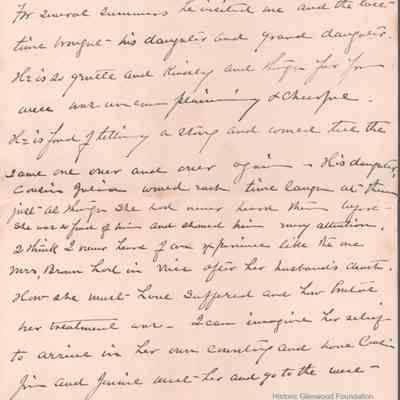 For several summers he visited me and the last
time brought his daughter and grand daughter.
He is so gentle and Kindly and though far from
well was uncomplaining & cheerful.
He is fond of telling a story and would tell the
same one over and over again - His daughter
Cousin Julia would each time laugh at them
just as though she had never heard them before.
She was so fond of him and showed him every attention.
I think I never heard of an experience like the one
Mrs. Brown had in Nice after her husband's death.
How she must have suffered and how
her treatment was - I can imagine her relief
to arrive in her own country and have Cousin
Jim and Jennie meet her and go to the
Historic Glenwood Foundation